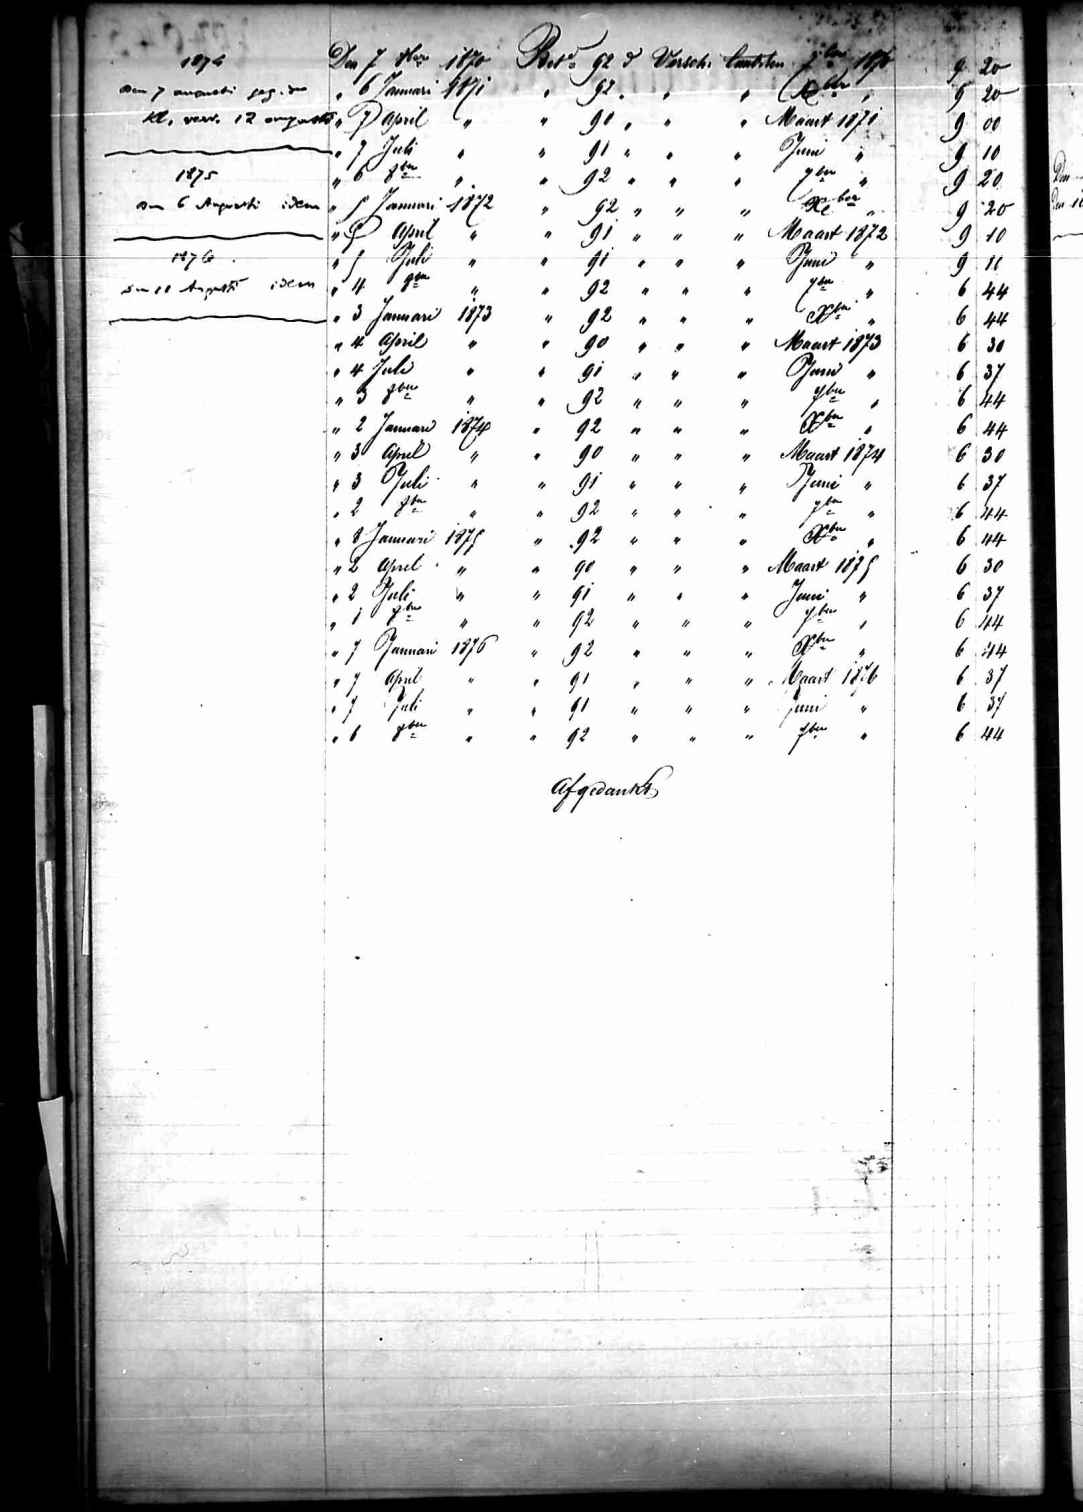 1874
den 7 augusti geg. de
kl. verv. 12 augusti
1875
den 6 Augusti idem
1876
den 11 Augusti idem
Den 7 8ber 1870 Bet.d 92 d Versch. 7ber 1870 9 20
" 6 Januari 1871 " 92 " " " Xber " 9 20
" 7 April " " 90 " " " Maart 1871 9 00
" 7 Juli " " 91 " " " Juni " 9 10
" 6 8ber " " 92 " " " 7ber " 9 20
" 5 Januari 1872 " 92 " " " Xber " 9 20
" 5 April " " 91 " " " Maart 1872 9 10
" 5 Juli " " 91 " " " Juni " 9 11
" 4 8ber " " 92 " " " 7ber " 6 44
" 3 Januari 1873 " 92 " " " Xber " 6 44
" 4 April " " 90 " " " Maart 1873 6 30
" 4 Juli " " 91 " " " Juni " 6 37
" 3 8ber " " 92 " " " 7ber " 6 44
" 2 Januari 1874 " 92 " " " Xber " 6 44
" 3 April " " 90 " " " Maart 1874 6 30
" 3 Juli " " 91 " " " Juni " 6 37
" 2 8ber " " 92 " " " 7ber " 6 44
" 8 Januari 1875 " 92 " " " Xber " 6 44
" 2 April " " 90 " " " Maart 1875 6 30
" 2 Juli " " 91 " " " Juni " 6 37
" 1 8ber " " 92 " " " 7ber " 6 44
" 7 Januari 1876 " 92 " " " Xber " 6 44
" 7 April " " 91 " " " Maart 1876 6 37
" 7 Juli " " 91 " " " Juni " 6 37
" 6 8ber " " 92 " " " 7ber " 6 44
Afgedankt